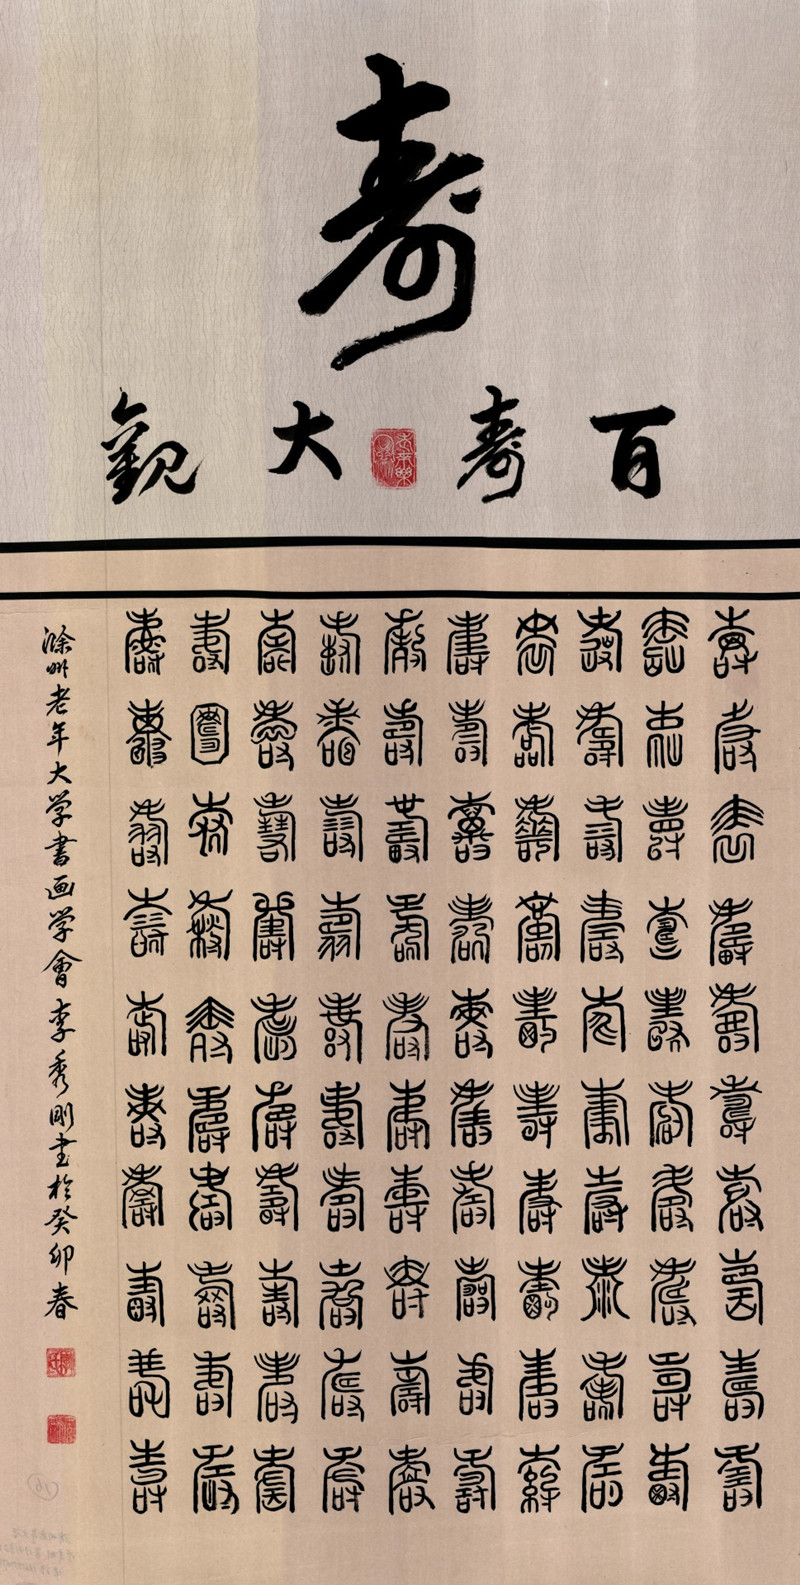 寿
百寿大觀
壽壽壽壽壽壽壽壽壽壽
壽壽壽壽壽壽壽壽壽壽
壽壽壽壽壽壽壽壽壽壽
壽壽壽壽壽壽壽壽壽壽
壽壽壽壽壽壽壽壽壽壽
壽壽壽壽壽壽壽壽壽壽
壽壽壽壽壽壽壽壽壽壽
壽壽壽壽壽壽壽壽壽壽
壽壽壽壽壽壽壽壽壽壽
壽壽壽壽壽壽壽壽壽壽
滁州老年大学書画学會李秀刚書於癸卯春